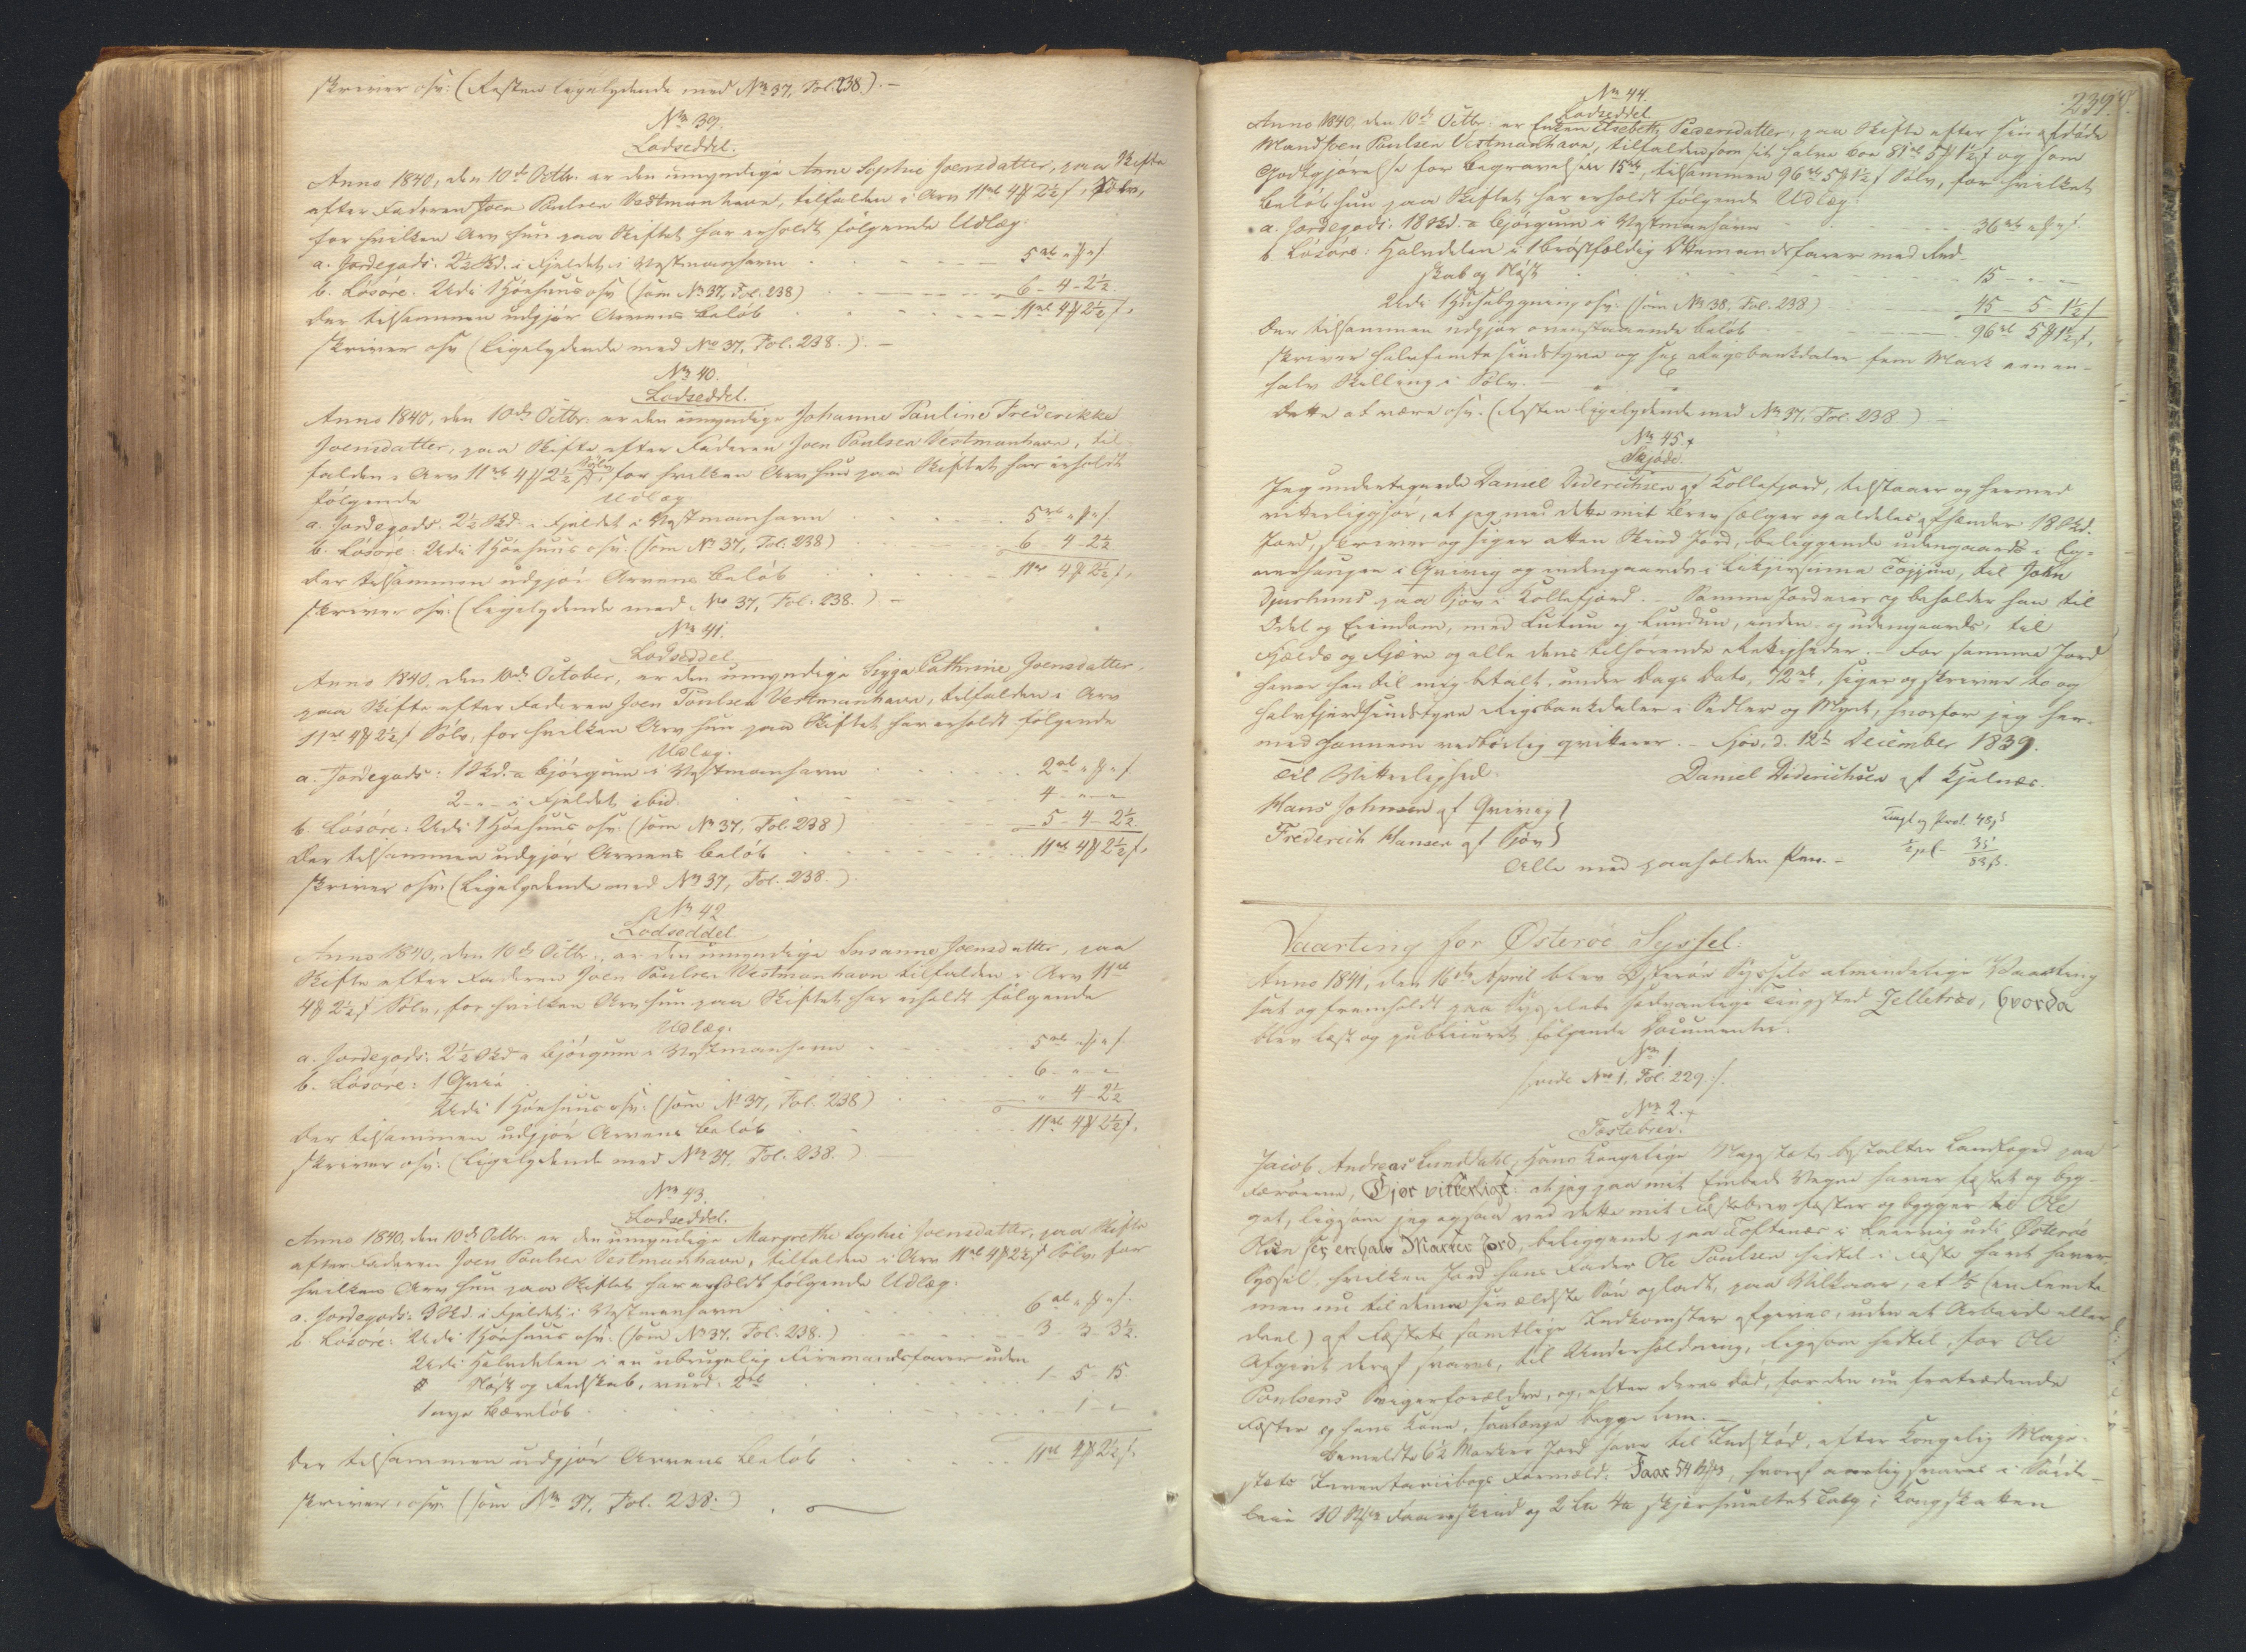 skriver osv: (Resten ligelydende med No 37, Fol. 238). –
No 39.
Lodseddel.
Anno 1840, den 10de Octbr. er den umyndige Anne Sophie Joensdatter, paa Skifte
efter Faderen Joen Poulsen Vestmanhavn, tilfalden i Arv 11rbd 4 # 2½ s, Sølv,
for hvilken Arv hun paa Skiftet har erholdt følgende Udlæg:
a. Jordegods: 2½ Skd. i Fjeldet i Vestmanhavn 5rbd " # " s
b. Løsøre: Udi 1 Hönhuus osv (som No 37, Fol. 238) 6 – 4 – 2½
der tilsammen udgjör Arvens Belöb 11rbd 4 # 2½ s,
skriver osv (Ligelydende med No 37, Fol. 238.) –
No 40.
Lodseddel.
Anno 1840, den 10de Octbr. er den umyndige Johanne Pauline Frederikke
Joensdatter, paa Skifte efter Faderen Joen Poulsen Vestmanhavn, til-
falden i Arv 11rbd 4 # 2½ s Sølv, for hvilken Arv hun paa Skiftet har erholdt
følgende Udlæg
a. Jordegods: 2½ Skd. i Fjeldet i Vestmanhavn 5rbd " # " s
b. Løsøre: Udi 1 Hönhuus osv. (som No 37, Fol. 238) 6 – 4 – 2½
der tilsammen udgjör Arvens Belöb 11rbd 4 # 2½ s,
skriver osv. (Ligelydende med No 37, Fol. 238.) –
No 41.
Lodseddel
Anno 1840, den 10de October, er den umyndige Sigga Cathrine Joensdatter,
paa Skifte efter Faderen Joen Poulsen Vestmanhavn, tilfalden i Arv
11rbd 4 # 2½ s Sølv, for hvilken Arv hun paa Skiftet har erholdt følgende
Udlæg.
a. Jordegods: 1 Skd. a Bjørgum i Vestmanhavn 2rbd " # " s
2 – " – i Fjeldet ibid. 4 – " – "
b. Løsøre: Udi 1 Hönhuus osv. (som No 37, Fol. 238) 5 – 4 – 2½
der tilsammen udgjör Arvens Belöb 11rbd 4 # 2½ s,
skriver osv. (Ligelydende med No 37, Fol. 238.)
No 42
Lodseddel
Anno 1840, den 10de Octbr., er den umyndige Susanne Joensdatter, paa
Skifte efter Faderen Joen Poulsen Vestmanhavn tilfalden i Arv 11rbd
4 # 2½ s Sølv, for hvilken Arv hun paa Skiftet har erholdt følgende
Udlæg.
a. Jordegods: 2½ Skd a Bjørgum i Vestmanhavn 5rbd " # " s
b. Løsøre: 1 Qvie 6 – " – "
Udi 1 Hönhuus osv. (som No 37, Fol. 238) " – 4 – 2½
der tilsammen udgjör Arvens Belöb 11rbd 4 # 2½ s,
skriver osv: (Ligelydende med No 37, Fol. 238.)
No 43.
Lodseddel.
Anno 1840, den 10de Octbr. er den umyndige Margrethe Sophie Joensdatter, paa Skifte
efter Faderen Joen Poulsen Vestmanhavn, tilfalden i Arv 11rbd 4 # 2½ s Sølv, for
hvilken Arv hun paa Skiftet har erholdt følgende Udlæg.
a. Jordegods: 3 Skd. i Fjeldet i Vestmanhavn 6rbd " # " s
b. Løsøre: Udi 1 Hönhuus osv. (som No 37. Fol. 238.) 3 – 3 – 3½.
Udi Halvdelen i en ubrugelig Firemandsfarer uden
Nøst og Redskab, vurd. 2rbd 1 – 5 – 15
1 nye – 1 – "
der tilsammen udgjör Arvens Belöb 11rbd 4 # 2½ s.
skriver osv. (som No 37, Fol. 238.)
239.
No 44.
Lodseddel
Anno 1840, den 10de Octbr. er Enken Elsebeth Pedersdatter, paa Skifte efter sin afdöde
Mand Joen Poulsen Vestmanhavn, tilfalden som sit halve Boe 81rbd 5 # 1½ s og som
Godtgjörelse for Begravelsen 15rbd, tilsammen 96rbd 5 # 1½ s Sølv, for hvilket
Belöb hun paa Skiftet har erholdt følgende Udlæg:
a. Jordegods: 18 Skd. a Bjørgum i Vestmanhavn 36rbd " # " s
b. Løsøre: Halvdelen i 1 brøstfældig Ottemandsfarer med Red-
skab og Nøst 15 – " – "
Udi 1 Huusbygning osv. (som No 38, Fol. 238) 45 – 5 – 1½ s
der tilsammen udgjör ovenstaaende Belöb 96rbd 5 # 1½ s,
skriver halvfemtesindstyve og sex Rigsbankdaler fem Mark een en-
halv Skilling i Sølv. –
Dette at være osv. (Resten ligelydende med No 37, Fol. 238) –
No 45. +
Skjöde.
Jeg undertegnede Daniel Diderichsen af Kollefjord, tilstaaer og hermed
vitterliggjör, at jeg med dette mit Brev sælger og aldeles afhænder 18 Skd.
Jord, skriver og siger atten Skind Jord, beliggende udengaards i
i Qvivig og indengaards i Tøjgun, til John
Djurhuus paa Sjov i Kollefjord. – Samme Jord nyder og beholder han til
Odel og Eiendom, med Luttun og Lundun, inden- og udengaards, til
Fjelds og Fjære og alle dens tilhørende Rettigheder. – For samme Jord
haver han til mig betalt, under Dags Dato, 72rbd, siger og skriver to og
halvfjerdsindstyve Rigsbankdaler i Sedler og Mynt, hvorfor jeg her-
med hannem vedbørlig qvitterer. – Sjov, d. 12te December 1839.
Til Vitterlighed: Daniel Diderichsen af Kjelnæs.
Hans Johnsen af Qvivig }
Frederich Hansen af Sjov }
Alle med paaholden Pen. –
Tingl. og Prot. 48 s
½ pCt 35
83 s.
Vaarting for Østeröe Syssel:
Anno 1841, den 16de April blev Østeröe Syssels almindelige Vaarting
sat og fremholdt paa Sysselets sædvanlige Tingsted Selletræ, hvorda
blev læst og publiceret følgende Documenter:
No 1.
/: vide No 1, Fol. 229 :/.
No 2. +
Fæstebrev.
Jacob Andreas Lunddahl, Hans Kongelige Majestæts bestalter Landfoged paa
Færöerne, Gjör vitterligt: at jeg paa mit Embeds Vegne haver fæstet og byg-
get, ligesom jeg ogsaa ved dette mit Fæstebrev fæster og bygger til Ole
Olsen sex en halv Marker Jord, beliggende paa Toftenæs i Leervig udi Østeröe
Syssel, hvilken Jord hans Fader Ole Poulsen hidtil i Fæste havt haver,
men nu til denne sin ældste Søn opladt, paa Vilkaar, at 1/5 (en Femte-
deel) af Fæstets samtlige Indkomster afgives, uden at Arbeide eller
Afgivt deraf svares, til Underholdning, ligesom hidtil, for Ole
Poulsens Svigerforældre, og, efter deres Død, for den nu fratrædende
Fæster og hans Kone, saalænge begge leve. –
Bemeldte 6½ Marker Jord have til Indstöd, efter Kongelig Maje-
stæts Inventariibogs Formeld: Faar 54 , hvoraf aarlig svares i
10 Faareskind og 2 Talg i Kongskatten